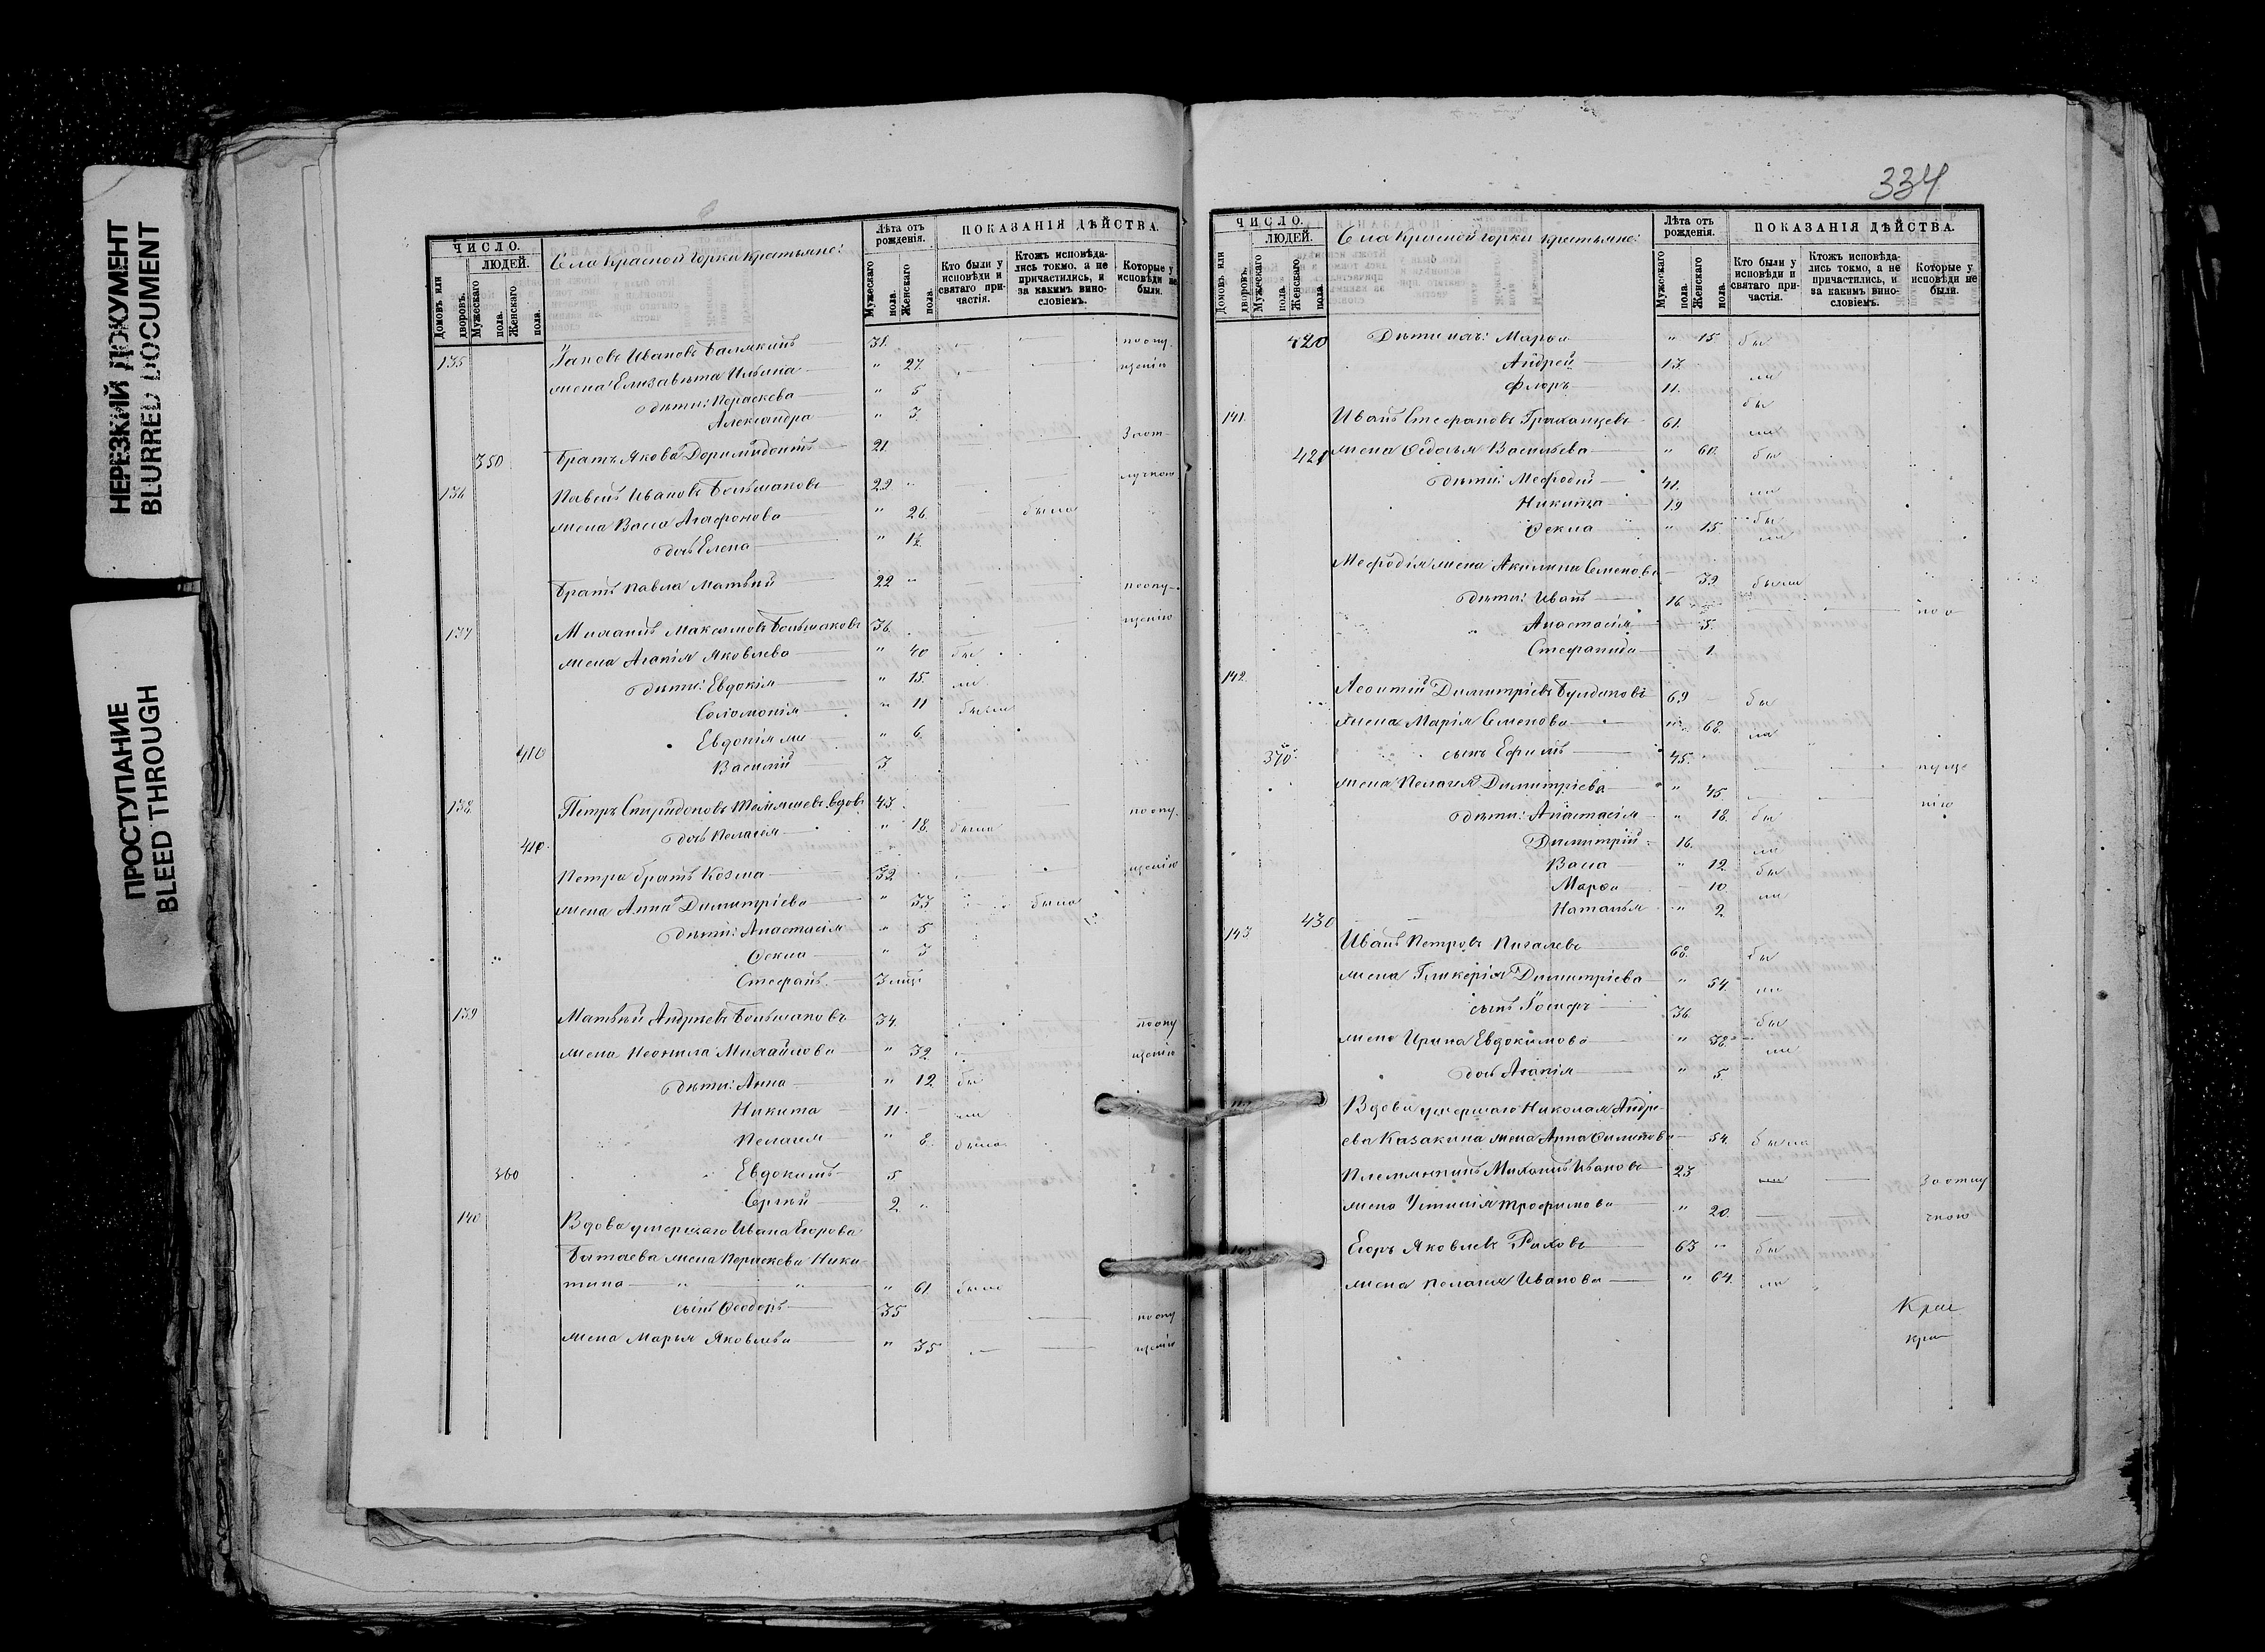 НЕРЕЗКИЙ ДОКУМЕНТ
BLURRED DOCUMENT
ПРОСТУПАНИЕ
BLEED THROUGH
ЧИСЛО.
ЛЮДЕЙ.
Домовъ или дворовъ.
Мужескаго пола.
Женскаго пола.
Села Красной Горки крестьяне:
Лѣта отъ рожденія.
Мужескаго пола.
Женскаго пола.
ПОКАЗАНІЯ ДѢЙСТВА.
Кто были у исповѣди и святаго причастія.
Ктожъ исповѣдались токмо, а не причастились, и за какимъ винословіемъ.
Которые у исповѣди не были.
135 Іаковъ Ивановъ 31. по опу
жена Елизавѣта Ильина " 27. щенію
дѣти: Параскева " 5
Александра " 3
350 Братъ Якова Доримидонтъ 21. За от
лучкою
136 Павелъ Ивановъ Большаковъ 29 "
жена Васса Агафонова " 26. была
дочь Елена " 1½
Братъ Павла Матвѣй 22 " по опу
щенію
137 Михаилъ Максимовъ Большаковъ 36.
жена Агапія Яковлева " 40 бы
дѣти: Евдокія " 15 ли
Соломонія " 11 были
Евдокія же " 6
410 Василій 3
138 Петръ Спиридоновъ вдовъ 43 по опу
дочь Пелагія " 18. была
Петра братъ Козма 32 щенію
жена Анна Димитріева " 33 была
дѣти: Анастасія " 5
Ѳекла " 3
Стефанъ 3 мѣс
139 Матвѣй Андреевъ Большаковъ 34. по опу
жена Неонила Михайлова " 32 щенію
дѣти: Анна " 12 бы
Никита 11 ли
Пелагія " 8 была
360 Евдокимъ 5
Сергѣй 2 "
140 Вдова умершаго Ивана Егорова
жена Параскева Ники
тина " " " 61 была
сынъ Ѳеодоръ 35 по опу
жена Марья Яковлева " 35 щенію
334
ЧИСЛО.
ЛЮДЕЙ.
Домовъ или дворовъ.
Мужескаго пола.
Женскаго пола.
Села Красной Горки крестьяне:
Лѣта отъ рожденія.
Мужескаго пола.
Женскаго пола.
ПОКАЗАНІЯ ДѢЙСТВА.
Кто были у исповѣди и святаго причастія.
Ктожъ исповѣдались токмо, а не причастились, и за какимъ винословіемъ.
Которые у исповѣди не были.
420 Дѣти ихъ: Марѳа " 15 бы
Андрей 13. ли
Флоръ 11. бы
141. Иванъ Стефановъ 61. ли
421 жена Ѳедосья Васильева " 60 бы
дѣти: Мефодій 41. ли
Никита 19 бы
Ѳекла " 15 ли
Мефодія жена Акилина Семенова 39 были
дѣти: Иванъ 16 по о
Анастасія 5.
Стефанида 1.
142. Леонтій Димитріевъ Булдаковъ 69 бы
жена Марія Семенова " 68. ли
370 сынъ Ефимъ 45.
жена Пелагія Димитріева " 45
дѣти: Анастасія " 18. бы
Димитрій 16. ли
Васса " 12 бы
Марѳа 10 ли
Наталья " 2
430
143 Иванъ Петровъ Пигалевъ 68. бы
жена Гликерія Димитріева " 54. ли
сынъ Іосифъ 36. бы
жена Ирина Евдокимова " 38 ли
дочь Агапія " 5
Вдова умершаго Николая Андре
ева Казакина жена Анна Филипова 54. была
Племянникъ Михаилъ Ивановъ 23 За отлу
жена Устинія Трофимова " 20. чкою
Егоръ Яковлевъ 63 " бы
жена Пелагія Иванова " 64. ли